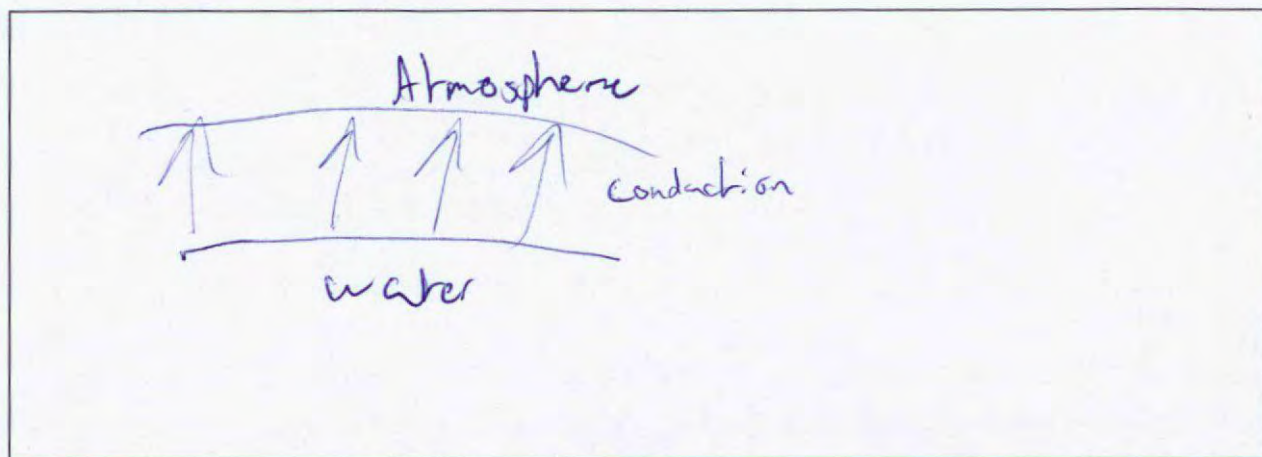 Atmosphere
conduction
water